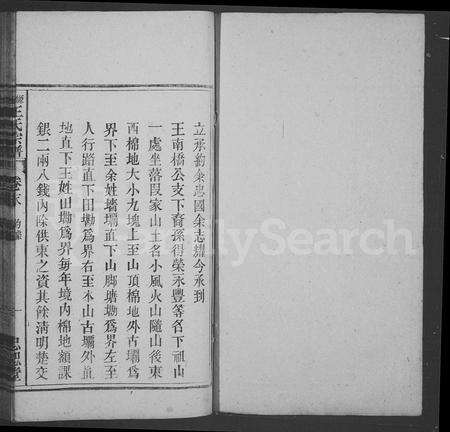 立承約余忠國余志耀今承到
王南橋公支下裔孫得榮永豐等名下祖山
一處坐落段家山土名小風火山隨山後東
西棉地大小九塊上至山頂棉地外古壩爲
界下至余姓墻壩直下山脚塘塝爲界左至
人行路直下田塝爲界右至本山古壩外直
地直下王姓田塝爲界每年境內棉地額課
銀二兩八錢內除供東之資其餘清明楚交
王氏宗譜
卷
FamilySearch